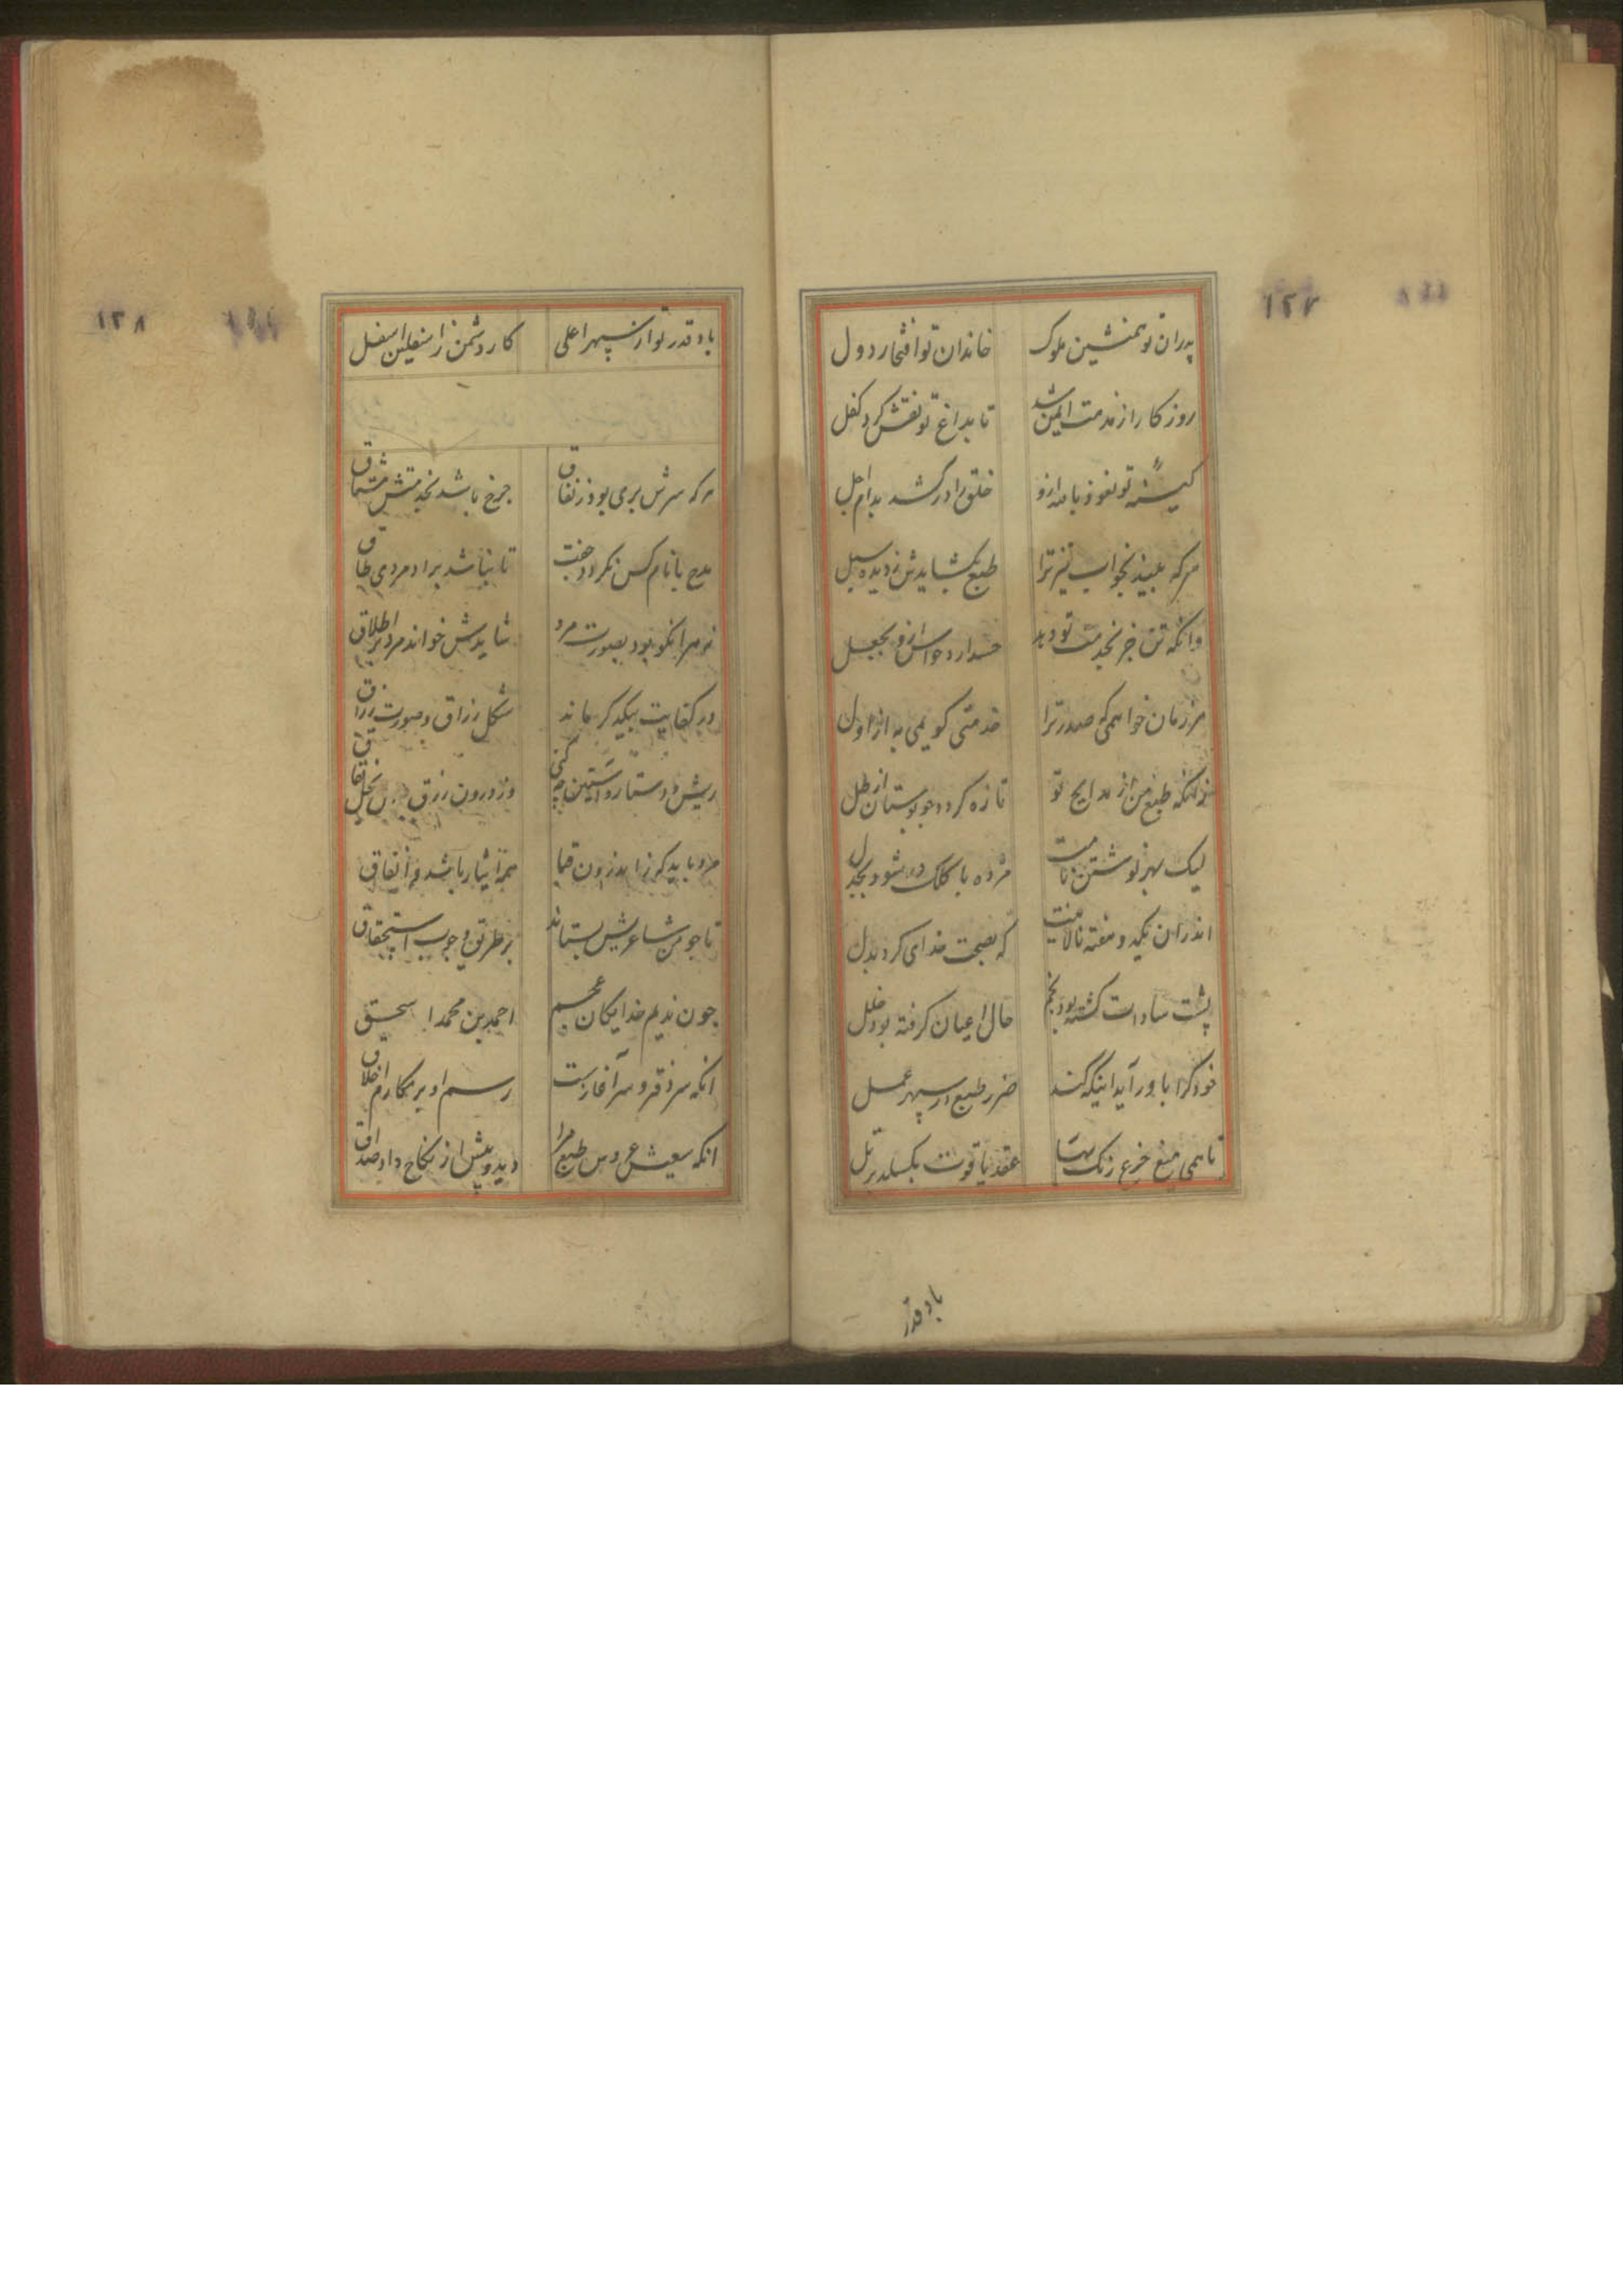 ۱۲۷
پدران تو همنشین ملوک خاندان تو افتخار دول
روز کار از مذمت ایمن شد تا بداغ تو نقش کرد کفل
کینه تو نعوذ بالله ازو خلق را درکشد بدام اجل
هرکه بیند بخواب تیر ترا طبع بکشایدش ز دیده سبل
وانکه تن جز بخدمت تو دهد حواس ازو بجعل
هر زمان خواهمی که صدر ترا خدمتی کویمی به از اول
زانکه طبع من از مدایح تو تازه کردد چو بوستان از طل
لیک بهر نوشتن نامت مژده با کلک در شود بجدل
اندران یکدو هفته نالانیت که بصحت خدای کرد بدل
پشت سادات کشته بود بخم حال اعیان کرفته بود خلل
خود کرا باور آید اینکه کند ضرر طبع در سپهر عمل
تا همی منع جزع رنک بهتا عقد یاقوت بکسلد بر تل
باد قدر
۱۲۸
باد قدر تو از سپهر اعلی کار دشمن ز اسفلین اسفل
هرکه سرش بری بود ز نفاق چرخ باشد بخدمتش مشتاق
مدح با نام کس نکردد جفت تا نباشد براد مردی طاق
نه هرانکو بود بصورت مرد شایدش خواند مرد بر اطلاق
در کتابت بیکدکر ماند شکل رزاق و صورت زراق
ریش و دستار و آستین چه کنی وز درون زرق بخل نفاق
مرد باید کز اندرون قبا همه ایثار باشد و انفاق
تا چو من شاعریش بستاند بر طریق وجوب استحقاق
چون ندیم خدایکان عجم احمد بن محمد اسحق
انکه سر دفتر و سرآغازست رسم او بر مکارم اخلاق
انکه سعیش عروس طبع مرا دید و پیش از نکاح داد صداق